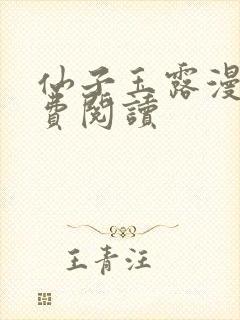 仙子玉露漫
費閱讀
王青汪